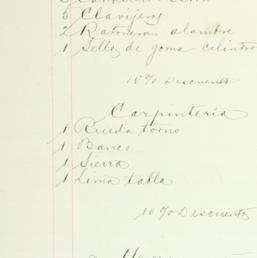 5 Clavijeros
2 Ratoneras alambre
1 Sello de goma cilindro
10% Descuento
Carpintería
1 Rueda torno
1 Banco
1 Sierra
1 Lima tabla
10% Descuento